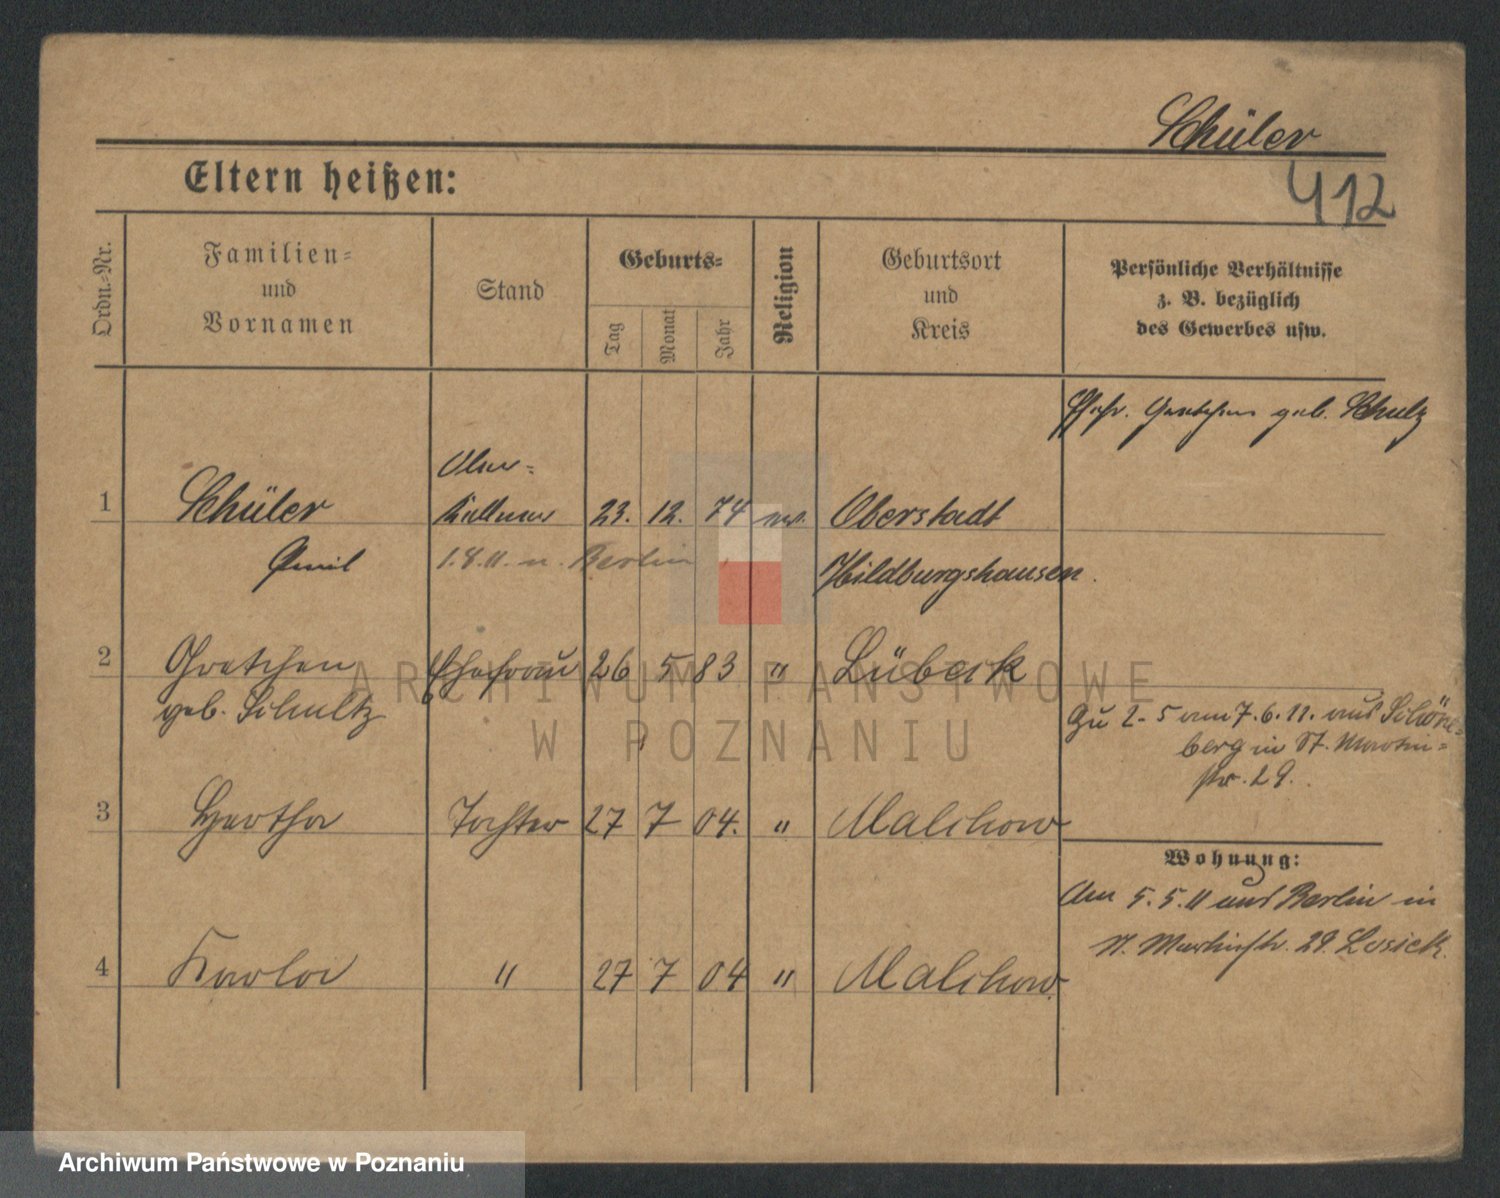 Schüler
412
Eltern heißen:
Ordn.-Nr.
Familien-
und
Vornamen
Stand
Geburts-
Tag
Monat
Jahr
Religion
Geburtsort
und
Kreis
Persönliche Verhältnisse
z. B. bezüglich
des Gewerbes usw.
geb. Schulz
Ober-
1 Schüler Kellner 23. 12. 74 ev. Oberstadt
Emil 1.8.11. n. Berlin Hildburgshausen.
2 Gretchen Ehefrau 26 5 83 " Lübeck
geb. Schultz
Zu 2-5 am 7.6.11. aus Schöne-
berg in St. Martin-
str. 29.
3 Hertha Tochter 27 7 04. " Malchow
Wohnung:
Am 5.5.11 aus Berlin in
St. Martinstr. 29. Losick.
4 " 27 7 04 " Malchow.
ARCHIWUM PAŃSTWOWE
W POZNANIU
Archiwum Państwowe w Poznaniu